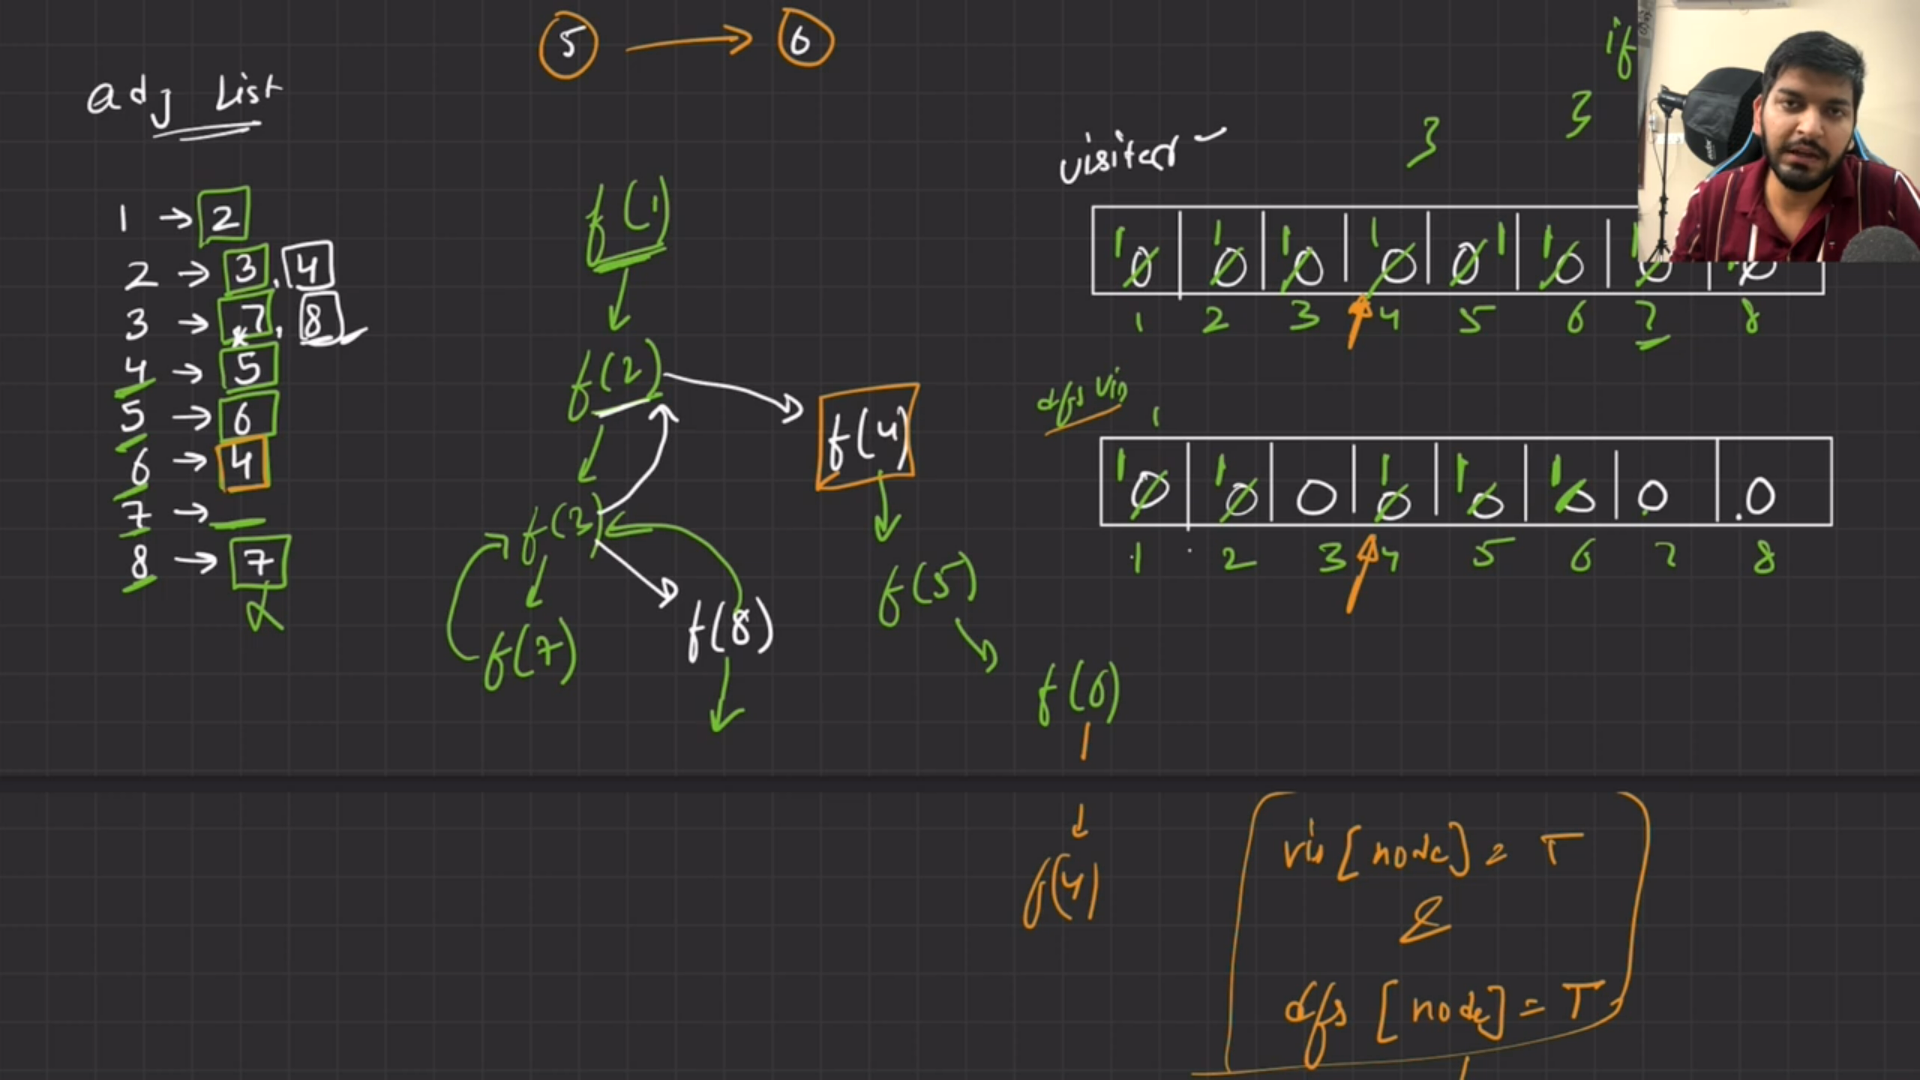 5 → 6
adj List
1 → 2
2 → 3, 4
3 → 7, 8
4 → 5
5 → 6
6 → 4
7 →
8 → 7
f(1)
f(2)
f(3)
f(7)
f(8)
f(4)
f(5)
f(6)
f(4)
if
3
3
visited
1 0 1 0 1 0 1 0 0 1 1 0 1 0 1 0
1 2 3 4 5 6 7 8
dfs vis
1
1 0 1 0 0 1 0 1 0 1 0 0 0
1 2 3 4 5 6 7 8
vis [node] = T
&
dfs [node] = T